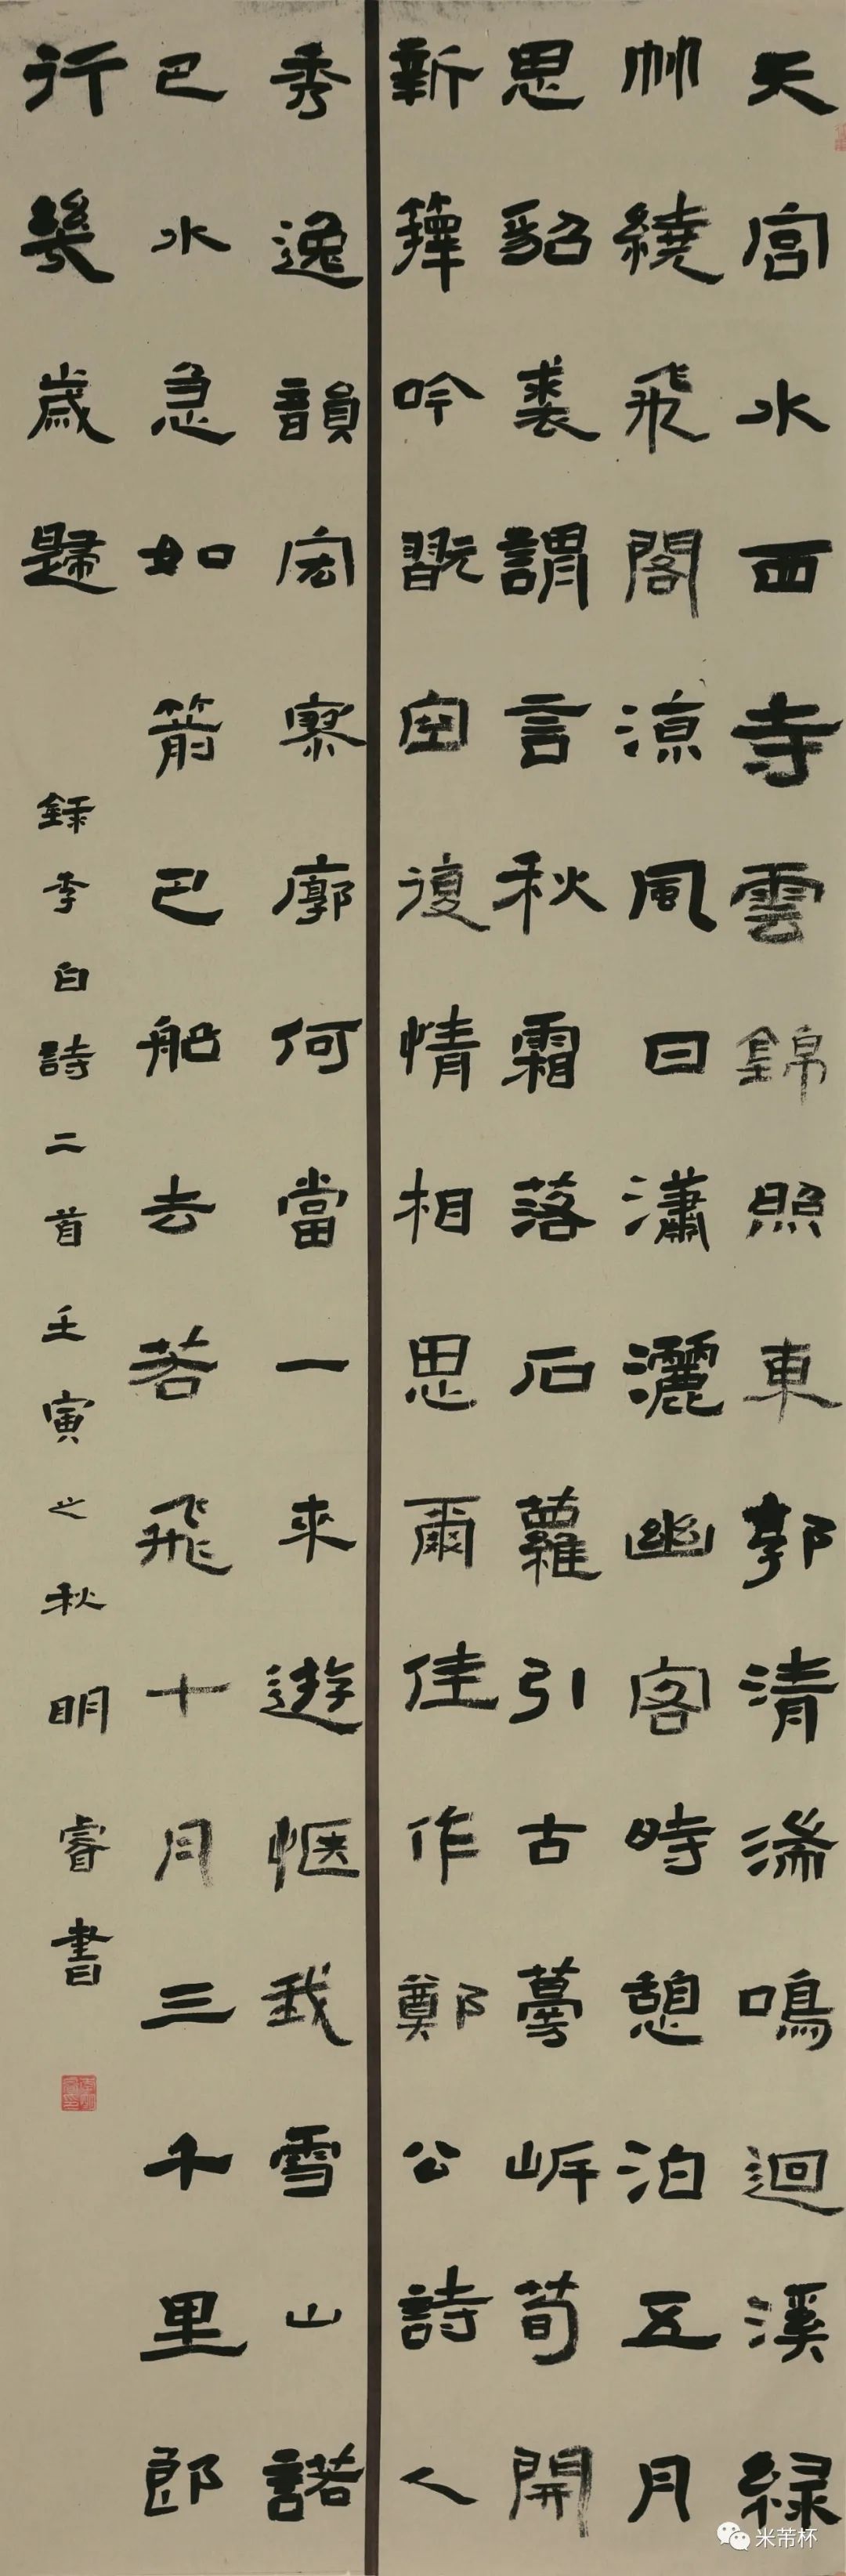 天宮水西寺雲錦照東郭清湍鳴迴溪緑
竹繞飛閣涼風日瀟灑幽客時憩泊五月
思貂裘謂言秋霜落石蘿引古蔓岸荀開
新籜吟翫空復情相思爾佳作鄭公詩人
秀逸韻宏寥廓何當一來遊愜我雪山諾
巴水急如箭巴船去若飛十月三千里郎
行幾歲歸
録李白詩二首壬寅之秋明睿書
米芾杯